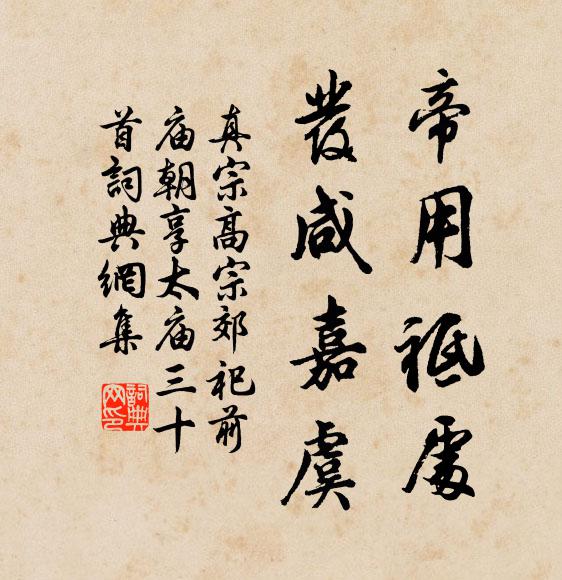 帝用祗處
發咸嘉虞
真宗高宗郊祀前
庙朝享太庙三十
首詞典網集
詞典
网印